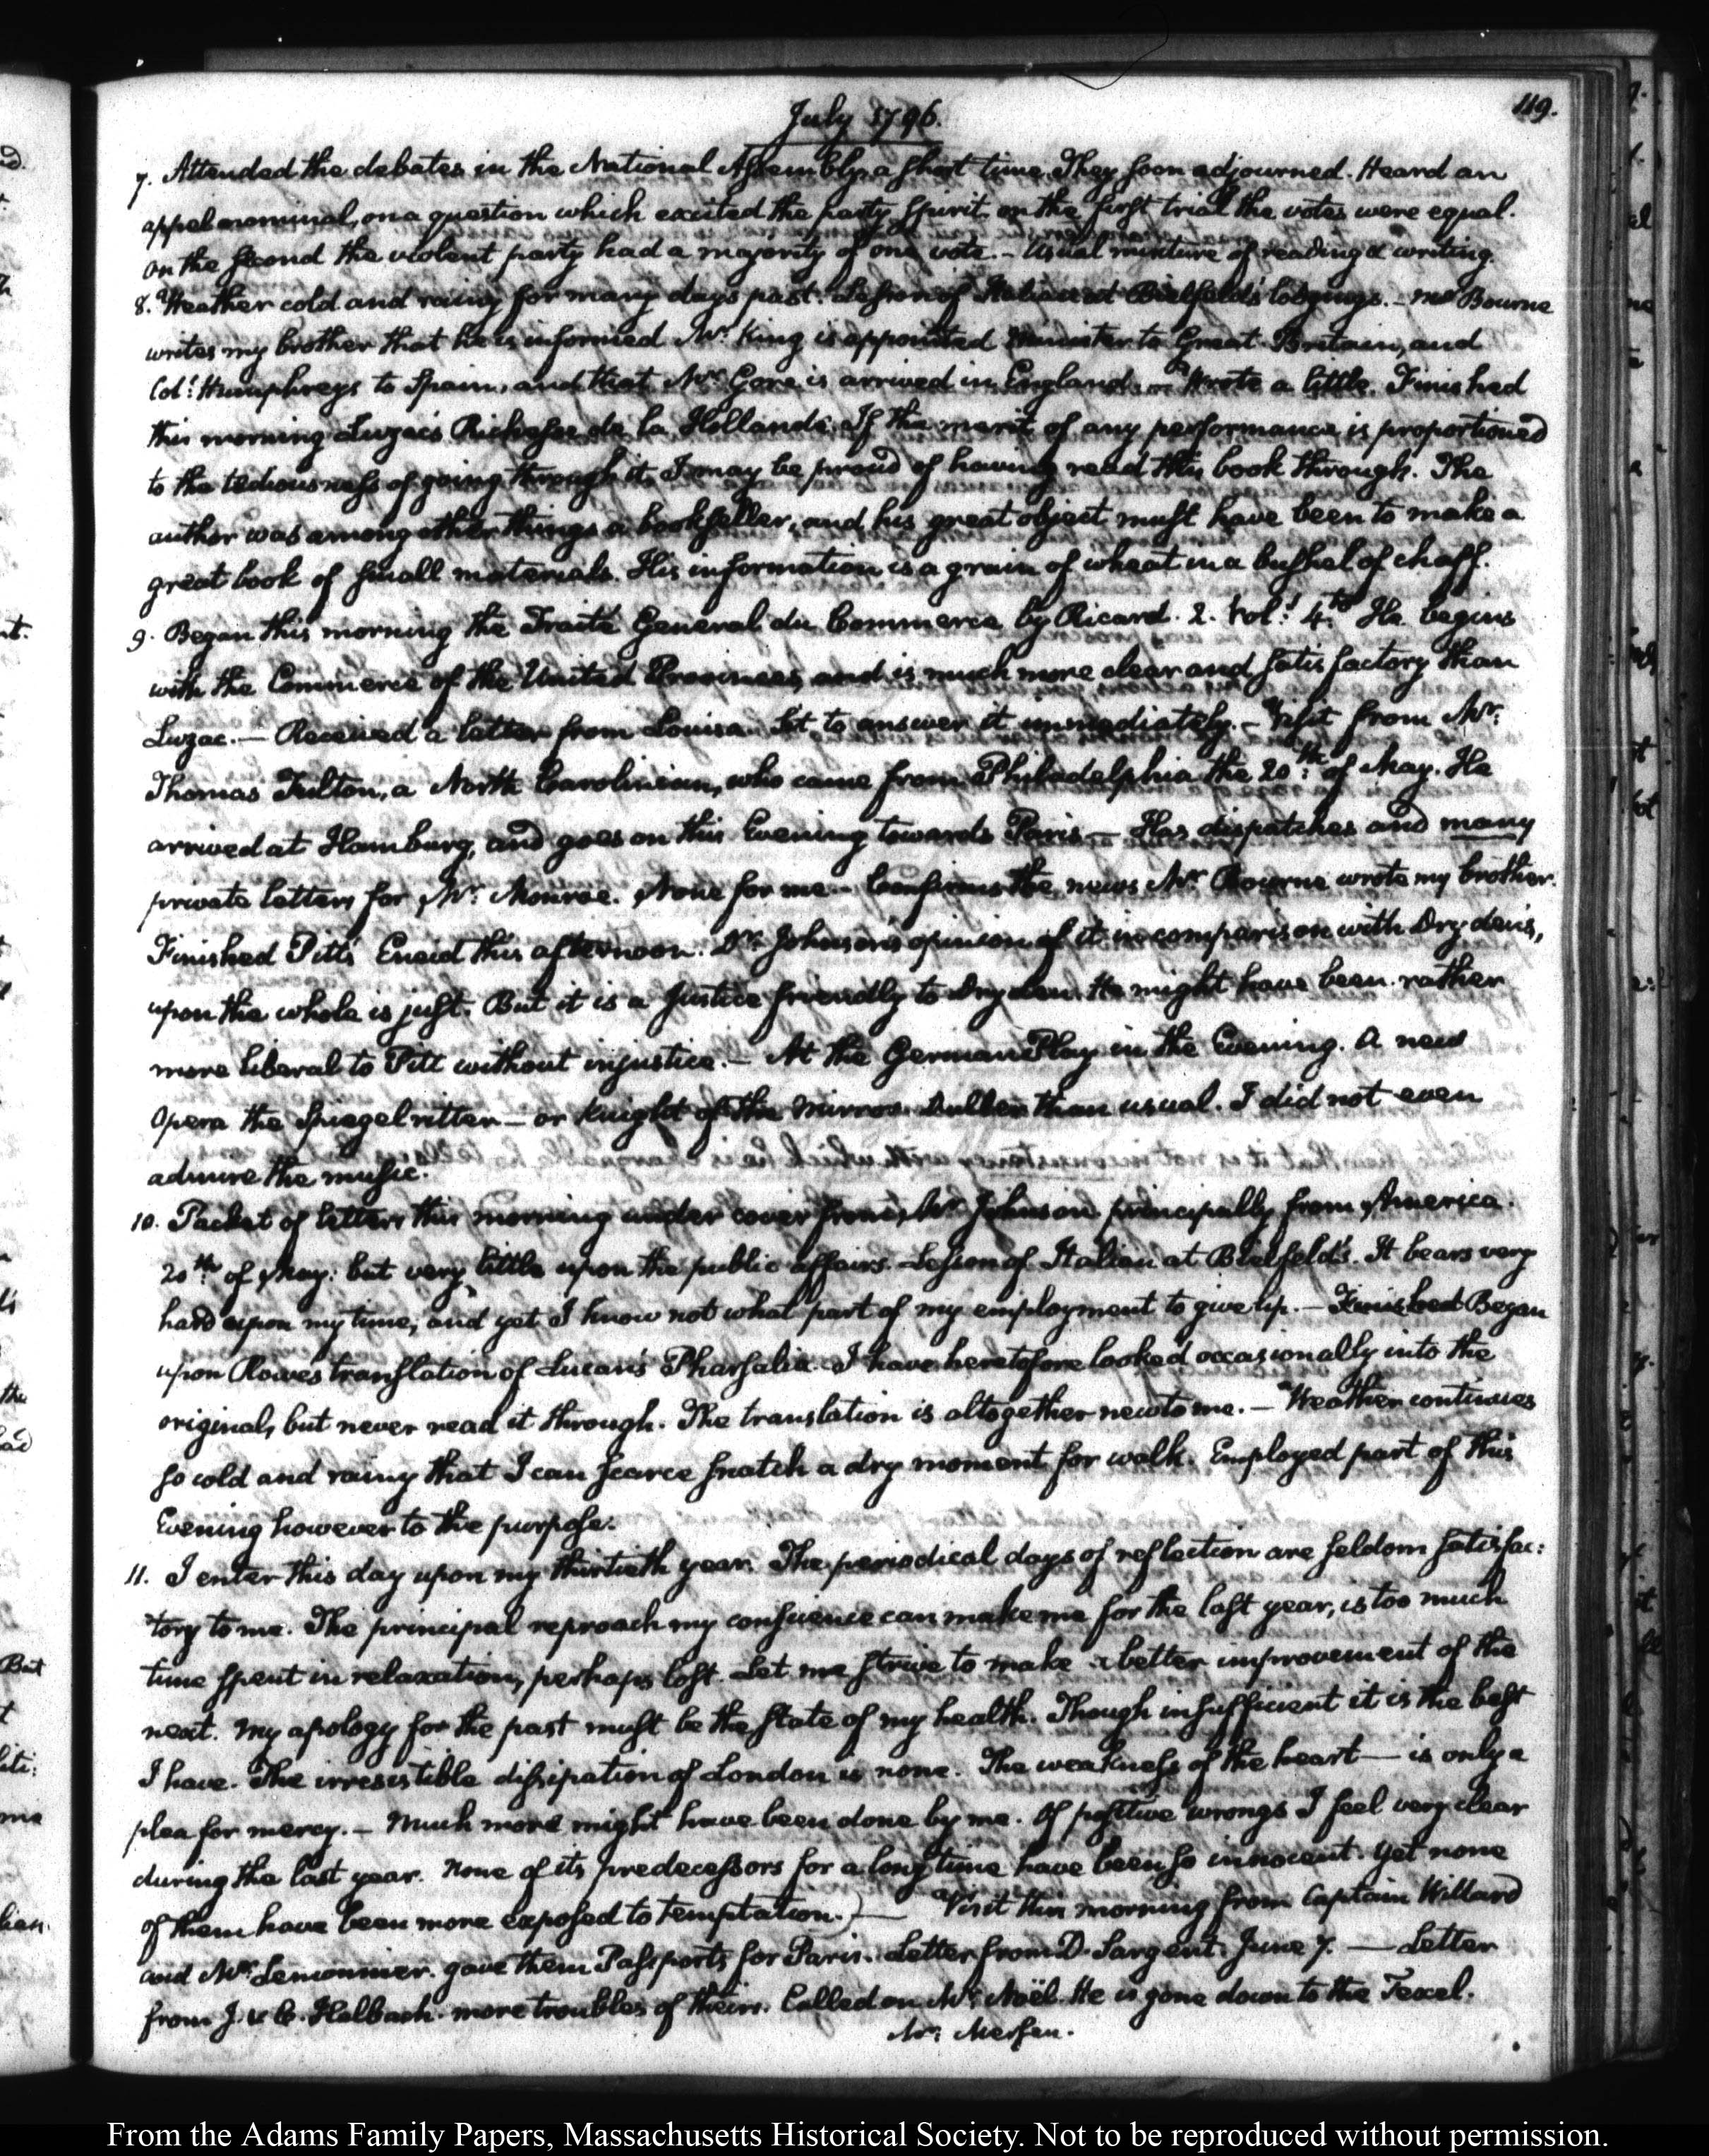 July 1796.
119.
7. Attended the debates in the National Assembly, a short time. They soon adjourned. Heard an
appel nominal, on a question which excited the party spirit. on the first trial the votes were equal.
on the second the violent party had a majority of one vote. – Usual mixture of reading & writing.
8. Weather cold and rainy for many days past. Lesson of Italian at Bielfeld's lodgings. – Mr. Bourne
writes my brother that he is informed Mr. King is appointed Minister to Great Britain, and
Col: Humphreys to Spain, and that Mr. Gore is arrived in England. – Wrote a little. Finished
this morning Luzac's Richesse de la Hollande. If the merit of any performance is proportioned
to the tediousness of going through it, I may be proud of having read this book through. The
author was among other things a bookseller, and his great object must have been to make a
great book of small materials. His information is a grain of wheat in a bushel of chaff.
9. Began this morning the Traité General du Commerce by Ricard. 2. Vols. 4to. He begins
with the Commerce of the United Provinces, and is much more clear and satisfactory than
Luzac. — Received a letter from Louisa. Set to answer it immediately. – Visit from Mr:
Thomas Fulton, a North Carolinian, who came from Philadelphia the 20th: of May. He
arrived at Hamburg, and goes on this Evening towards Paris — Has dispatches and many
private letters for Mr: Monroe. None for me – Confirms the news Mr. Bourne wrote my brother.
Finished Pitt's Eneid this afternoon. Dr. Johnson's opinion of it in comparison with Dryden's,
upon the whole is just. But it is a Justice friendly to Dryden. He might have been rather
more liberal to Pitt without injustice. – At the German Play in the Evening. A new
Opera the Spiegelritter – or Knight of the Mirror. Duller than usual. I did not even
admire the music.
10. Packet of letters this morning under cover from Mr. Johnson principally from America.
20th: of May: but very little upon the public affairs. Lesson of Italian at Bielfeld's. It bears very
hard upon my time, and yet I know not what part of my employment to give up. – Finished Began
upon Rowe's translation of Lucan's Pharsalia. I have heretofore looked occasionally into the
original, but never read it through. The translation is altogether new to me. – Weather continues
so cold and rainy that I can scarce snatch a dry moment for walk. Employed part of this
Evening however to the purpose.
11. I enter this day upon my thirtieth year. The periodical days of reflection are seldom satisfac:
tory to me. The principal reproach my conscience can make me for the last year, is too much
time spent in relaxation, perhaps lost. Let me strive to make a better improvement of the
next. My apology for the past must be the state of my health. Though insufficient it is the best
I have. The irresistible dissipation of London is none. The weakness of the heart — is only a
plea for mercy. – Much more might have been done by me. Of positive wrongs I feel very clear
during the last year. None of its predecessors for a long time have been so innocent. Yet none
of them have been more exposed to temptation.) — Visit this morning from Captain Willard
and Mr. Lemonnier. gave them Passports for Paris. Letter from D. Sargent. June 7. — Letter
from J. & C. Halbach. more troubles of theirs. Called on Mr. Noël. He is gone down to the Texel.
Mr:
From the Adams Family Papers, Massachusetts Historical Society. Not to be reproduced without permission.